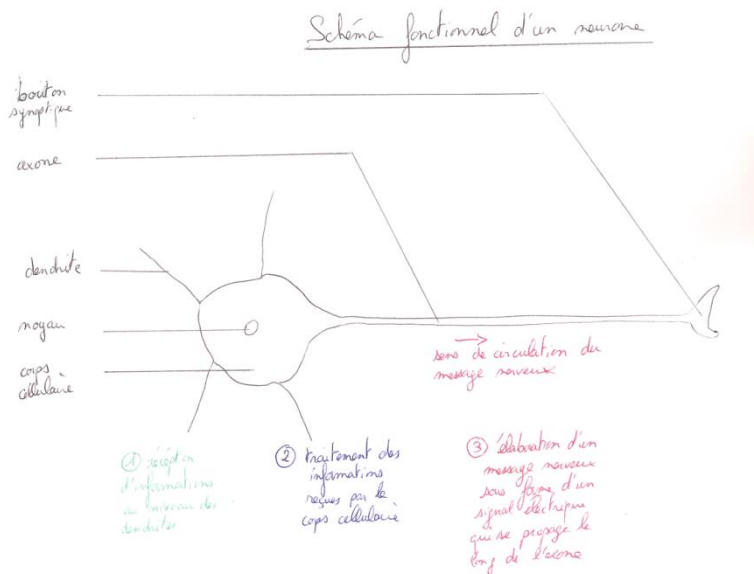 Schéma fonctionnel d'un neurone
bouton
synaptique
axone
dendrite
noyau
corps
cellulaire
sens de circulation du
message nerveux
① réception
d'informations
au niveau des
dendrites
② traitement des
informations
reçues par le
corps cellulaire
③ élaboration d'un
message nerveux
sous forme d'un
signal électrique
qui se propage le
long de l'axone